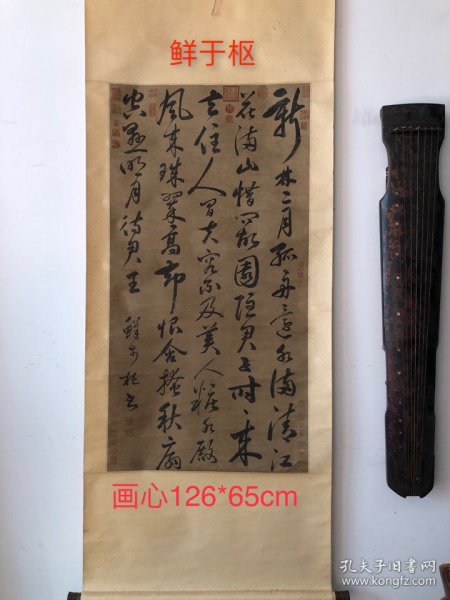 鲜于枢
新林二月孤舟還水滿清江
花滿山借问故園隱君子時々来
去住人间夫容不及美人粧水殿
風来珠翠香却恨含情掩秋扇
空懸明月待君王 鮮于枢书
画心126*65cm
孔夫子旧书网
www.kongfz.com